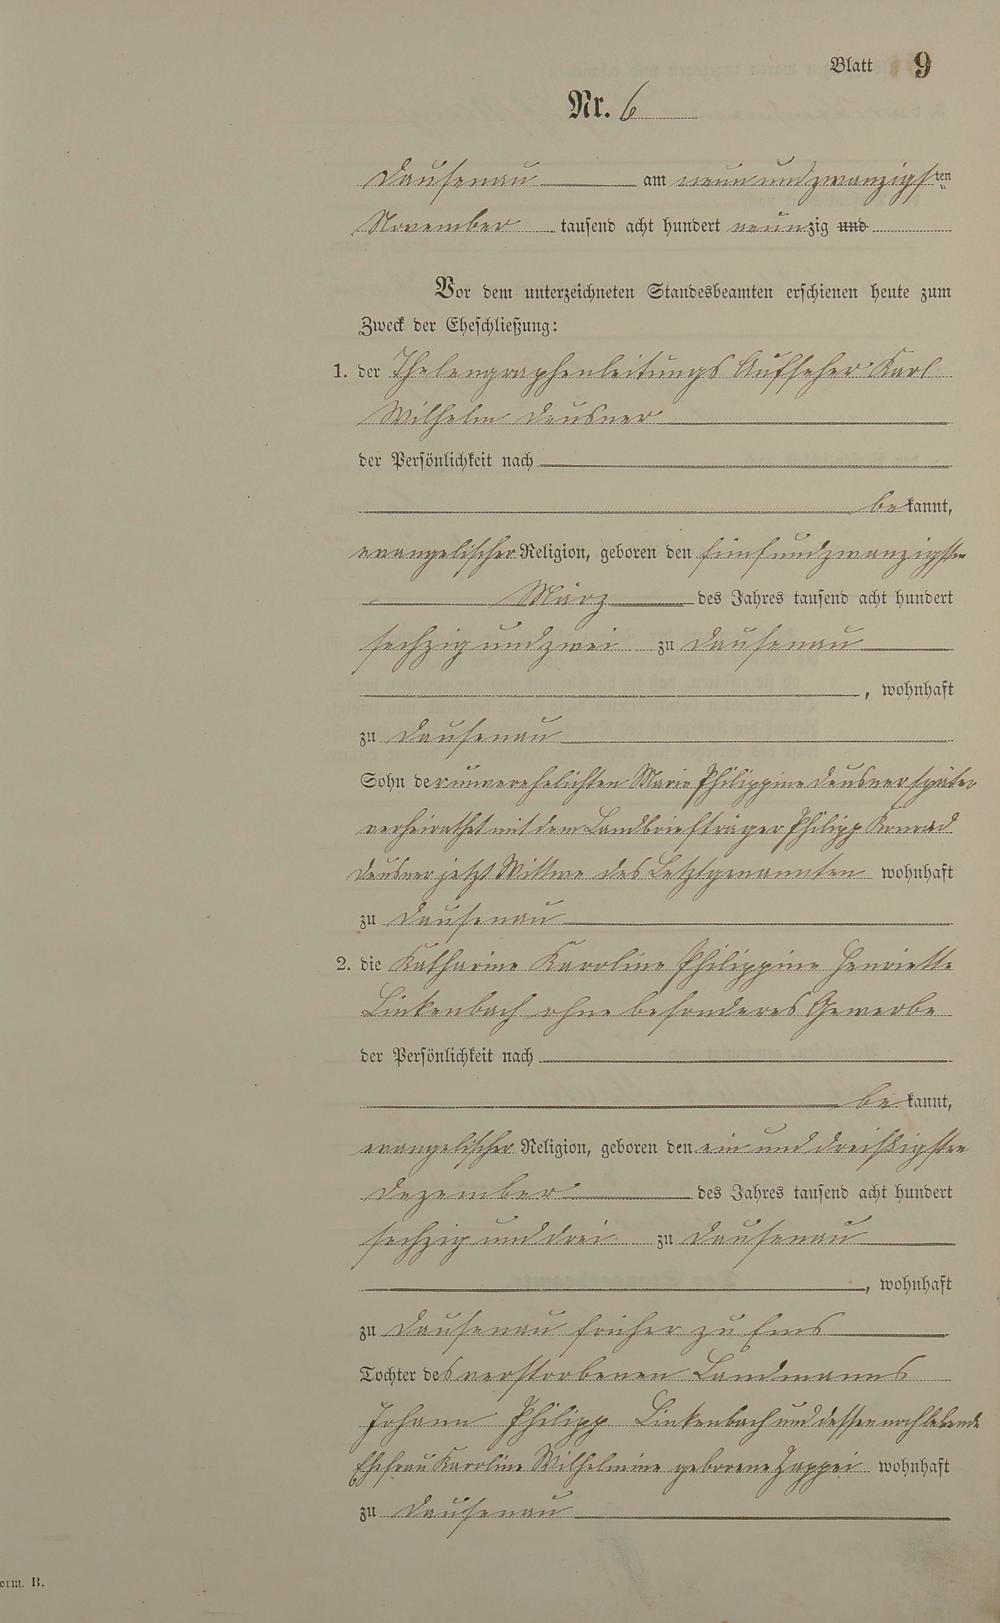 Blatt 9
Nr. 6
Dausenau am neunundzwanzigsten
November tausend acht hundert neunzig und
Vor dem unterzeichneten Standesbeamten erschienen heute zum
Zweck der Eheschließung:
1. der Thelengraphenleitungs Aufseher Karl
Wilhelm Deusner
der Persönlichkeit nach
bekannt,
evangelischer Religion, geboren den fünfundzwanzigsten
März des Jahres tausend acht hundert
sechzig und zwei zu Dausenau
, wohnhaft
zu Dausenau
Sohn der unverehelichten Marie Philippine Deusner später
verheirathet mit dem Landbriefträger Philipp Konrad
Deusner jetzt Wittwe des Letztgenannten wohnhaft
zu Dausenau
2. die Katharine Karoline Philippine Henriette
Linkenbach ohne besonderes Gewerbe
der Persönlichkeit nach
bekannt,
evangelischer Religion, geboren den ein und dreißigsten
Dezember des Jahres tausend acht hundert
sechzig und drei zu Dausenau
, wohnhaft
zu Dausenau früher zu Ems
Tochter des verstorbenen Landmanns
Johann Philipp Linkenbach und dessen noch lebende
Ehefrau Karoline Wilhelmine geborene wohnhaft
zu Dausenau
orm. B.